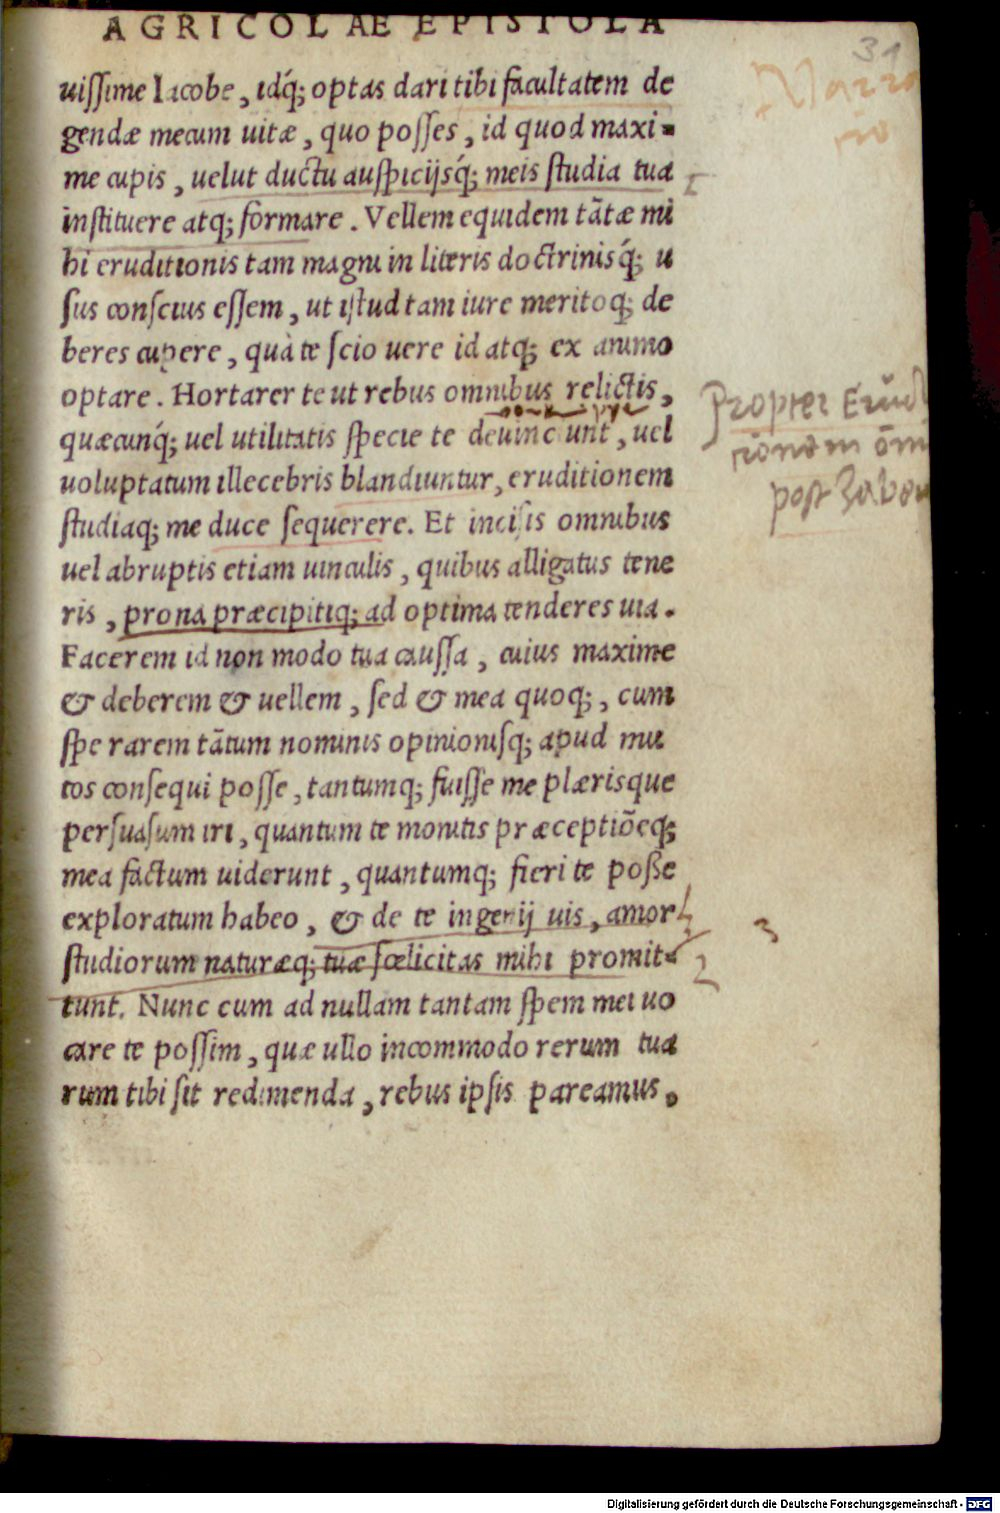 AGRICOLAE EPISTOLA
31
uissime Iacobe, idq́; optas dari tibi facultatem de
gendæ mecum uitæ, quo posses, id quod maxi-
me cupis, uelut ductu auspicijsq́; meis studia tua
instituere atq; formare. Vellem equidem tãtæ mi
hi eruditionis tam magni in literis doctrinisq́; u
sus conscius essem, ut istud tam iure meritoq; de
beres cupere, quà te scio uere id atq; ex animo
optare. Hortarer te ut rebus omnibus relictis,
quæcunq́; uel utilitatis specie te deuinciunt, uel
uoluptatum illecebris blandiuntur, eruditionem
studiaq; me duce sequerere. Et incisis omnibus
uel abruptis etiam uinculis, quibus alligatus tene
ris, prona præcipitiq; ad optima tenderes uia.
Facerem id non modo tua caussa, cuius maxime
& deberem & uellem, sed & mea quoq;, cum
sperarem tãtum nominis opinionisq; apud mul
tos consequi posse, tantumq; fuisse me plærisque
persuasum iri, quantum te monitis præceptiõeq;
mea factum uiderunt, quantumq; fieri te posse
exploratum habeo, & de te ingenij uis, amor
studiorum naturæq; tuæ fœlicitas mihi promit-
tunt. Nunc cum ad nullam tantam spem mei uo
care te possim, quæ ullo incommodo rerum tua
rum tibi sit redimenda, rebus ipsis pareamus,
Propter Erud
tionem õm
post
1
2
3
Digitalisierung gefördert durch die Deutsche Forschungsgemeinschaft - DFG